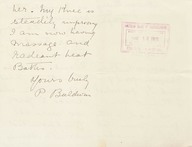 her. My Knee is
steadily improving
I am now having
Massage and
Radiant heat
Baths.
Yours truly
P Baldwin